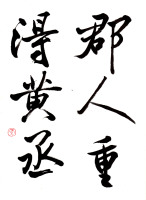 郡人重
得黄丞